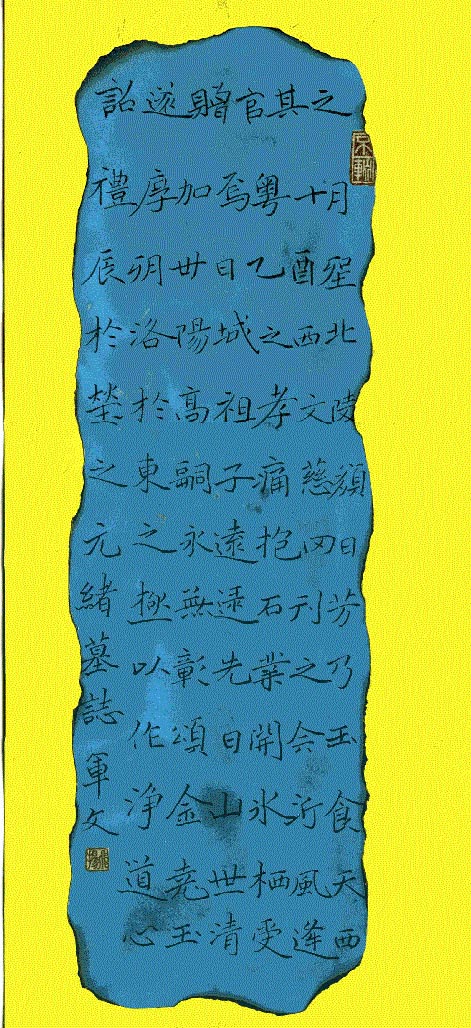 詔遂贈官其之
禮摩加焉粵十月
辰朔卅日乙酉窆
於洛陽城之西北
塋於高祖孝文陵
之東嗣子痛慈顏
之永遠抱罔日
極無逯石刊芳
以彰先業之乃
作頌日開會玉
淨金山水沂食
道堯世栖風天
心玉清受逢西
元緒墓誌 軍文